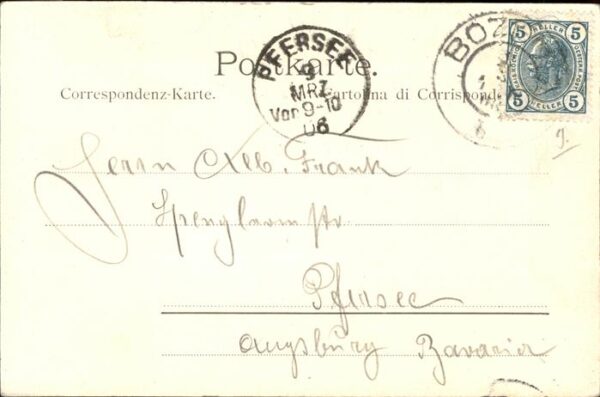 Postkarte.
Correspondenz-Karte.
Cartolina di Corrispond
PFERSEE
9
MRZ
Vor 9-10
06
BOZ
5 HELLER 5
5 HELLER 5
Herrn Alb. Frank
Spenglermstr
Pfersee
Augsburg Bavaria